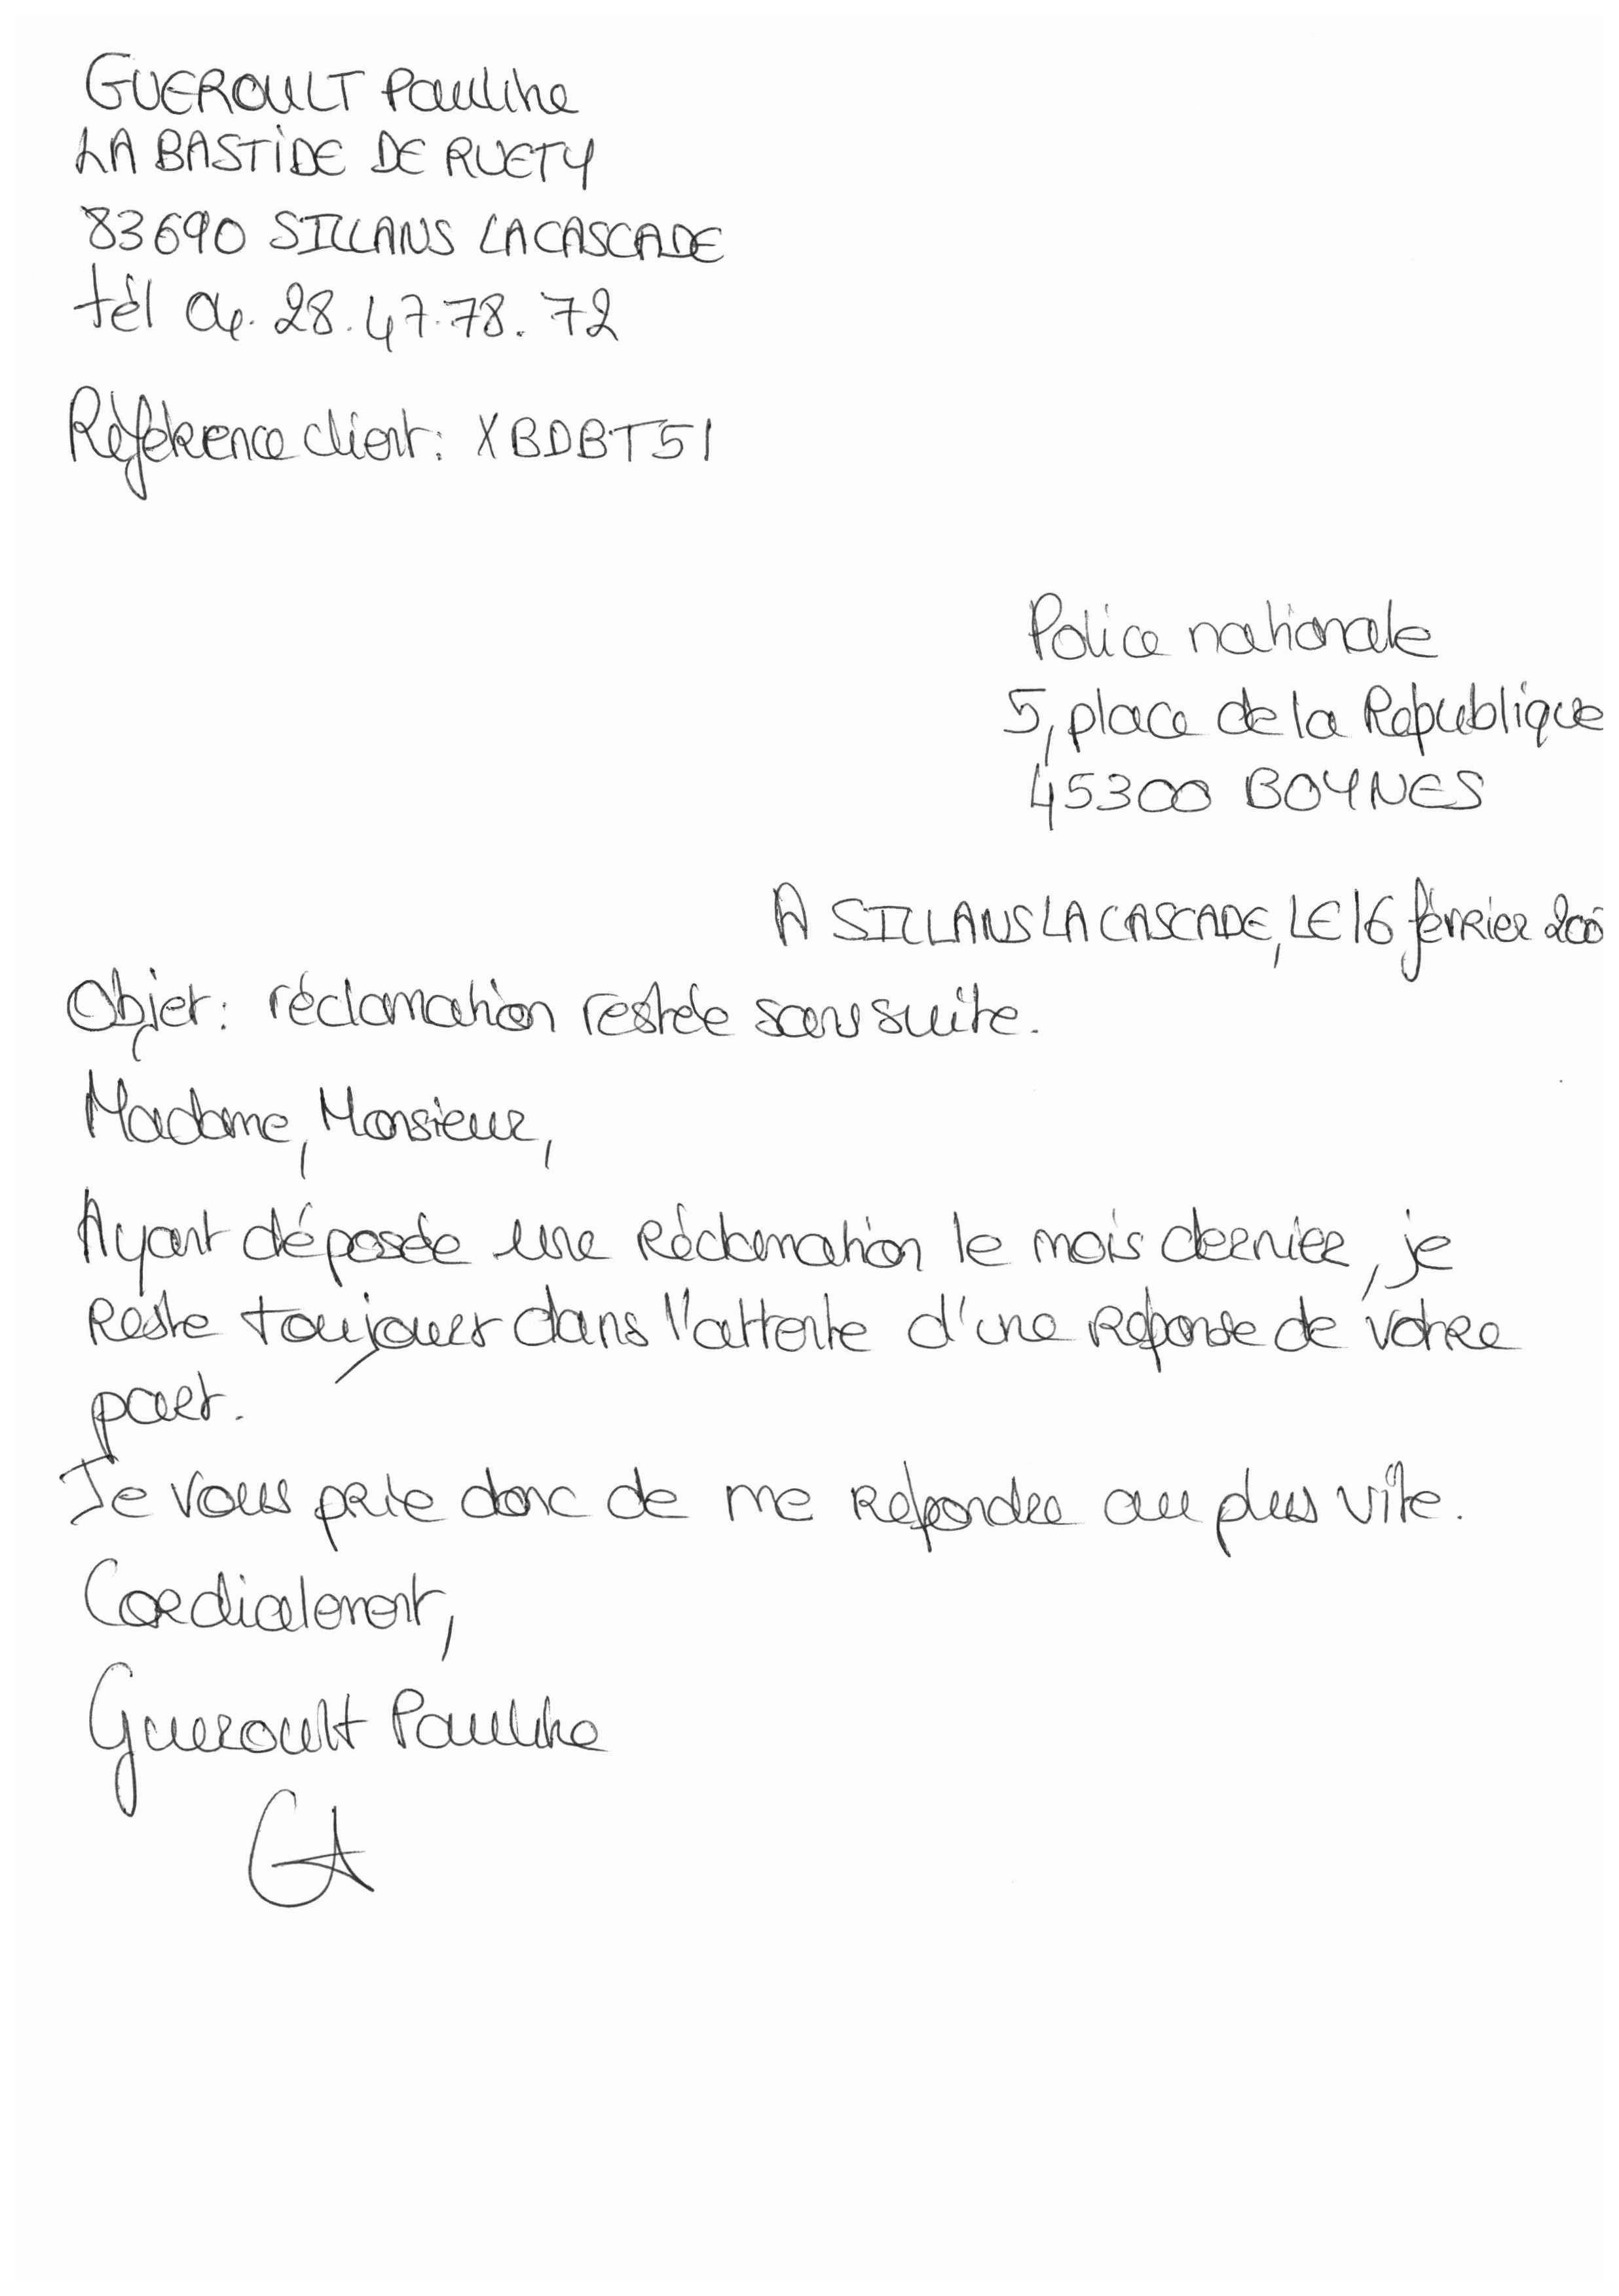 GUEROULT Pauline
LA BASTIDE DE RUETY
83690 SILLANS LA CASCADE
tél 04.28.47.78.72
Référence client: XBDBT51
Police nationale
5, place de la République
45300 BOYNES
A SILLANS LA CASCADE, LE 16 février
Objet: réclamation restée sans suite.
Madame, Monsieur,
Ayant déposée une réclamation le mois dernier, je
reste toujours dans l'attente d'une réponse de votre
part.
Je vous prie donc de me répondre au plus vite.
Cordialement,
Gueroult Pauline